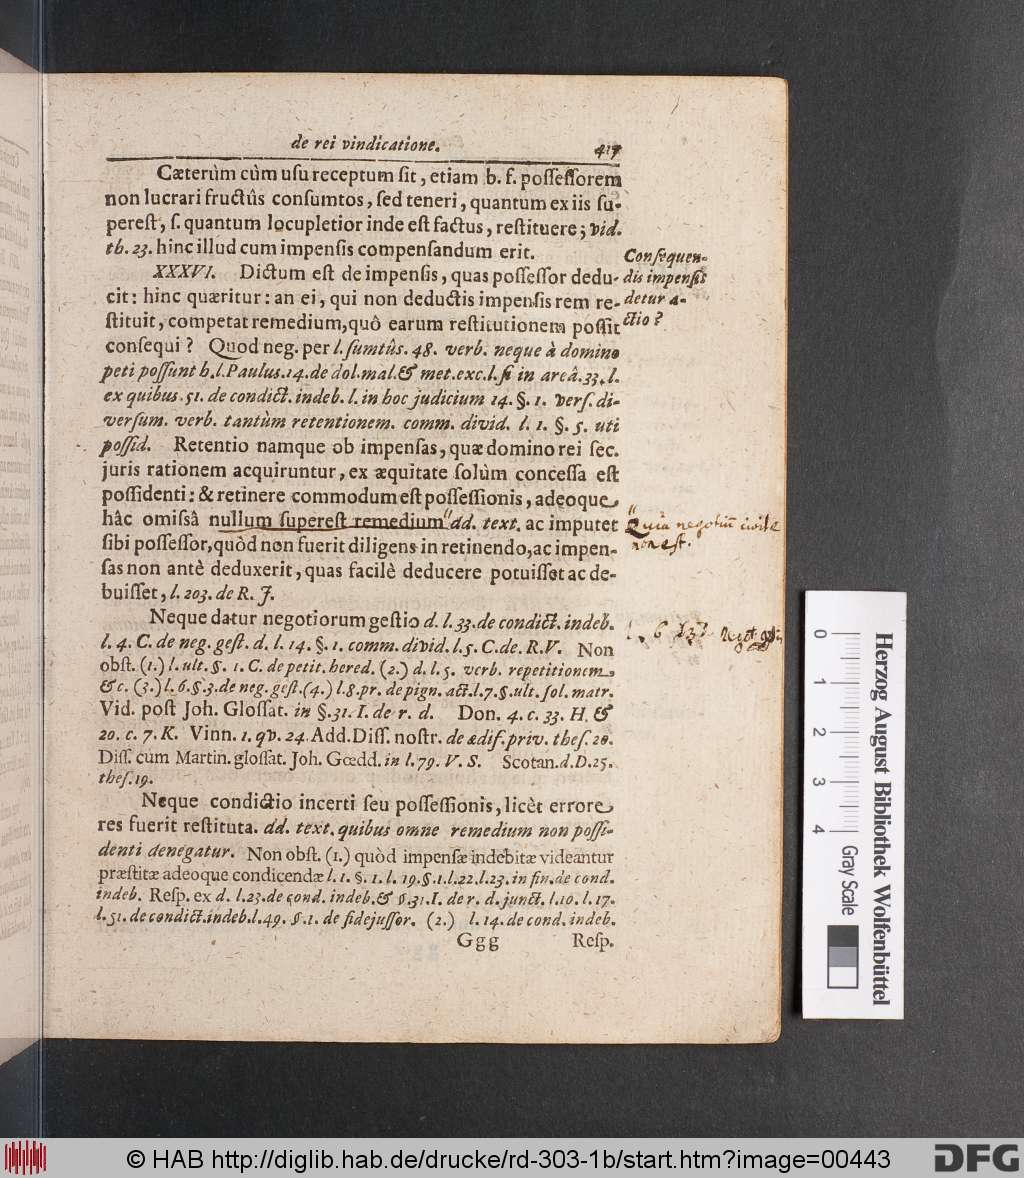 de rei vindicatione. 417
Cæterùm cùm usu receptum sit, etiam b. f. possessorem
non lucrari fructûs consumtos, sed teneri, quantum ex iis su-
perest, s. quantum locupletior inde est factus, restituere; vid.
th. 23. hinc illud cum impensis compensandum erit.
XXXVI. Dictum est de impensis, quas possessor dedu-
cit: hinc quæritur: an ei, qui non deductis impensis rem re-
stituit, competat remedium, quô earum restitutionem possit
consequi? Quod neg. per l. sumtûs. 48. verb. neque à domino
peti possunt h. l. Paulus. 14. de dol. mal. & met. exc. l. si in areâ. 33. l.
ex quibus. 51. de condict. indeb. l. in hoc judicium 14. §. 1. vers. di-
versum. verb. tantùm retentionem. comm. divid. l. 1. §. 5. uti
possid. Retentio namque ob impensas, quæ domino rei sec.
juris rationem acquiruntur, ex æquitate solùm concessa est
possidenti: & retinere commodum est possessionis, adeoque
hâc omissâ nullum superest remedium dd. text. ac imputet
sibi possessor, quòd non fuerit diligens in retinendo, ac impen-
sas non antè deduxerit, quas facilè deducere potuisset ac de-
buisset, l. 203. de R. J.
Neque datur negotiorum gestio d. l. 33. de condict. indeb.
l. 4. C. de neg. gest. d. l. 14. §. 1. comm. divid. l. 5. C. de. R. V. Non
obst. (1.) l. ult. §. 1. C. de petit. hered. (2.) d. l. 5. verb. repetitionem
&c. (3.) l. 6. §. 3. de neg. gest. (4.) l. 8. pr. de pign. act. l. 7. §. ult. sol. matr.
Vid. post Joh. Glossat. in §. 31. I. de r. d. Don. 4. c. 33. H. &
20. c. 7. K. Vinn. 1. qv. 24. Add. Diss. nostr. de ædif. priv. thes. 20.
Diss. cum Martin. glossat. Joh. Gœdd. in l. 79. V. S. Scotan. d. D. 25.
thes. 19.
Neque condictio incerti seu possessionis, licèt errore
res fuerit restituta. dd. text. quibus omne remedium non possi-
denti denegatur. Non obst. (1.) quòd impensæ indebitæ videantur
præstitæ adeoque condicendæ l. 1. §. 1. l. 19. §. 1. l. 22. l. 23. in fin. de cond.
indeb. Resp. ex d. l. 23. de cond. indeb. & §. 31. I. de r. d. junct. l. 10. l. 17.
l. 51. de condict. indeb. l. 49. §. 1. de fidejussor. (2.) l. 14. de cond. indeb.
Ggg Resp.
Consequen-
dis impensis
detur a-
ctio?
Quia negotiū civile
non est.
Herzog August Bibliothek Wolfenbüttel
0 1 2 3 4 Gray Scale
© HAB http://diglib.hab.de/drucke/rd-303-1b/start.htm?image=00443
DFG